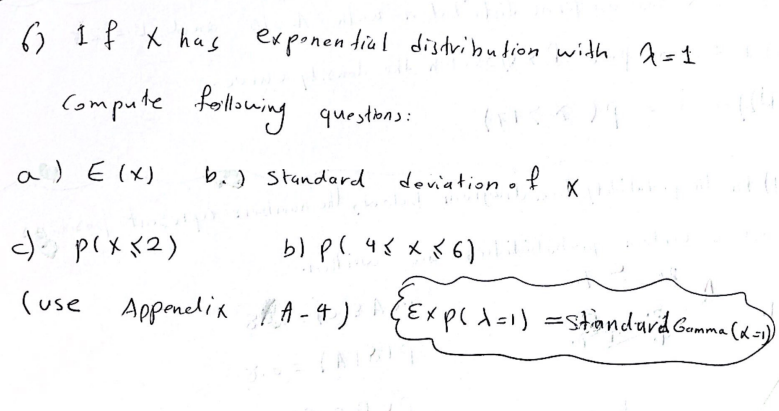 6) If X has exponential distribution with λ=1
Compute following questions:
a) E(X) b.) Standard deviation of X
c) P(X≤2) b) P(4≤X≤6)
(use Appendix A-4) Exp(λ=1) = Standard Gamma(α=1)